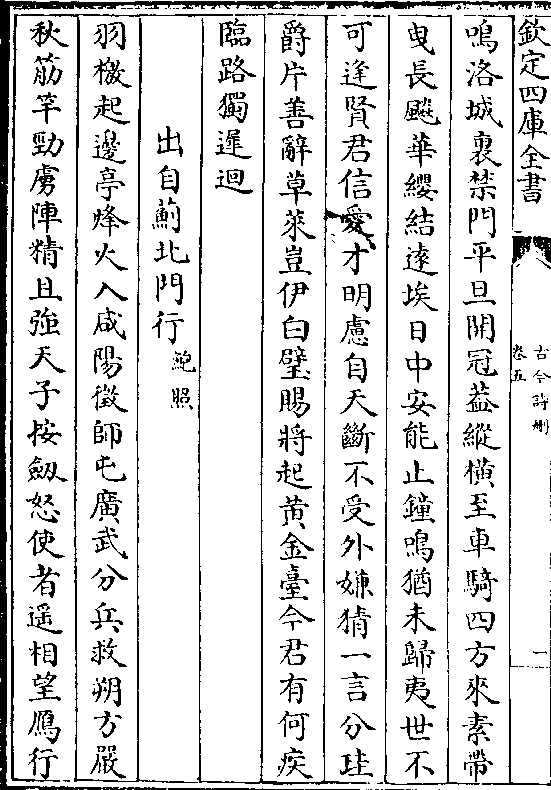 欽定四庫全書
古今詩刪
卷五
一
鳴洛城裏禁門平旦開冠葢縱横至車騎四方來素帶
曵長飈華纓結逺埃日中安能止鐘鳴猶未歸夷世不
可逢賢君信愛才明慮自天斷不受外嫌猜一言分珪
爵片善辭草萊豈伊白璧賜將起黄金臺今君有何疾
臨路獨遲迴
出自薊北門行鮑照
羽檄起邊亭烽火入咸陽徵師屯廣武分兵救朔方嚴
秋筋竿勁虜陣精且強天子按劔怒使者遥相望鴈行